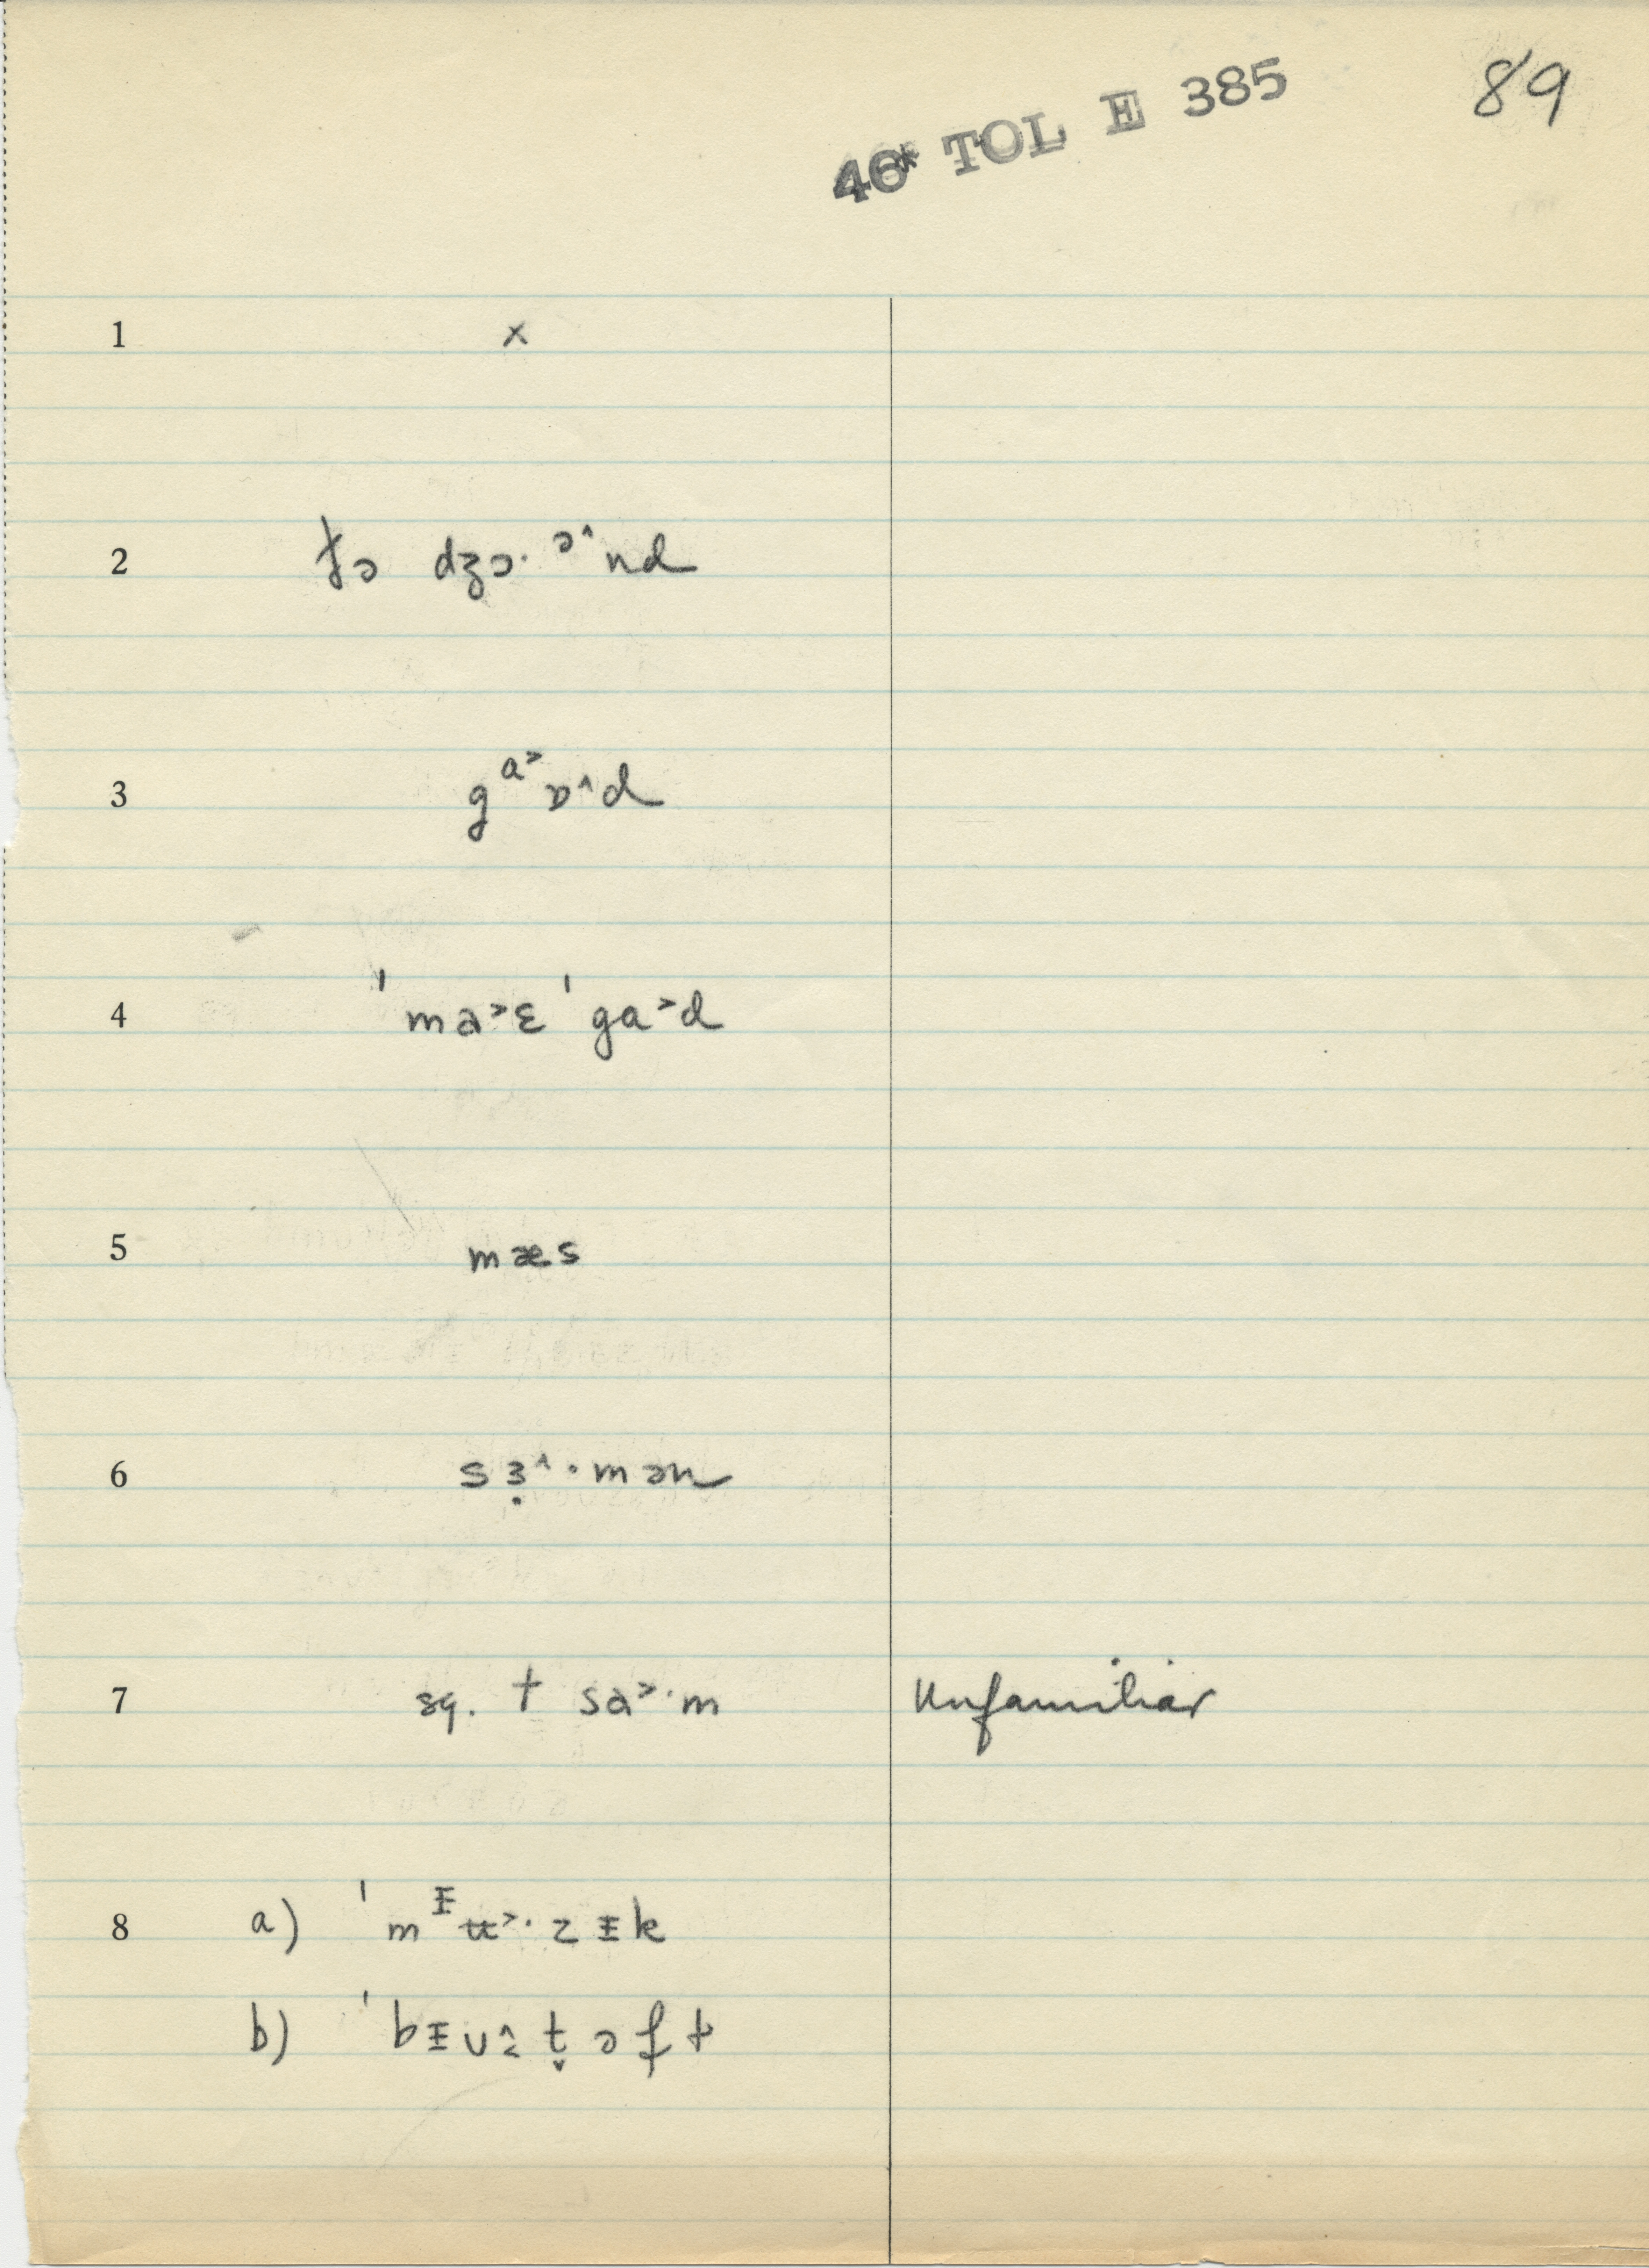 89
46* TOL E 385
1 ×
2 tə dʒɔ· ᵊ^nd
3 gᵃ˃ɒ^d
4 ˈma˃ɛ ˈga˃d
5 mæs
6 sɜ̣^·mən
7 sq. † sa˃·m Unfamiliar
8 a) ˈmᵻʉ˃·zᵻk
b)